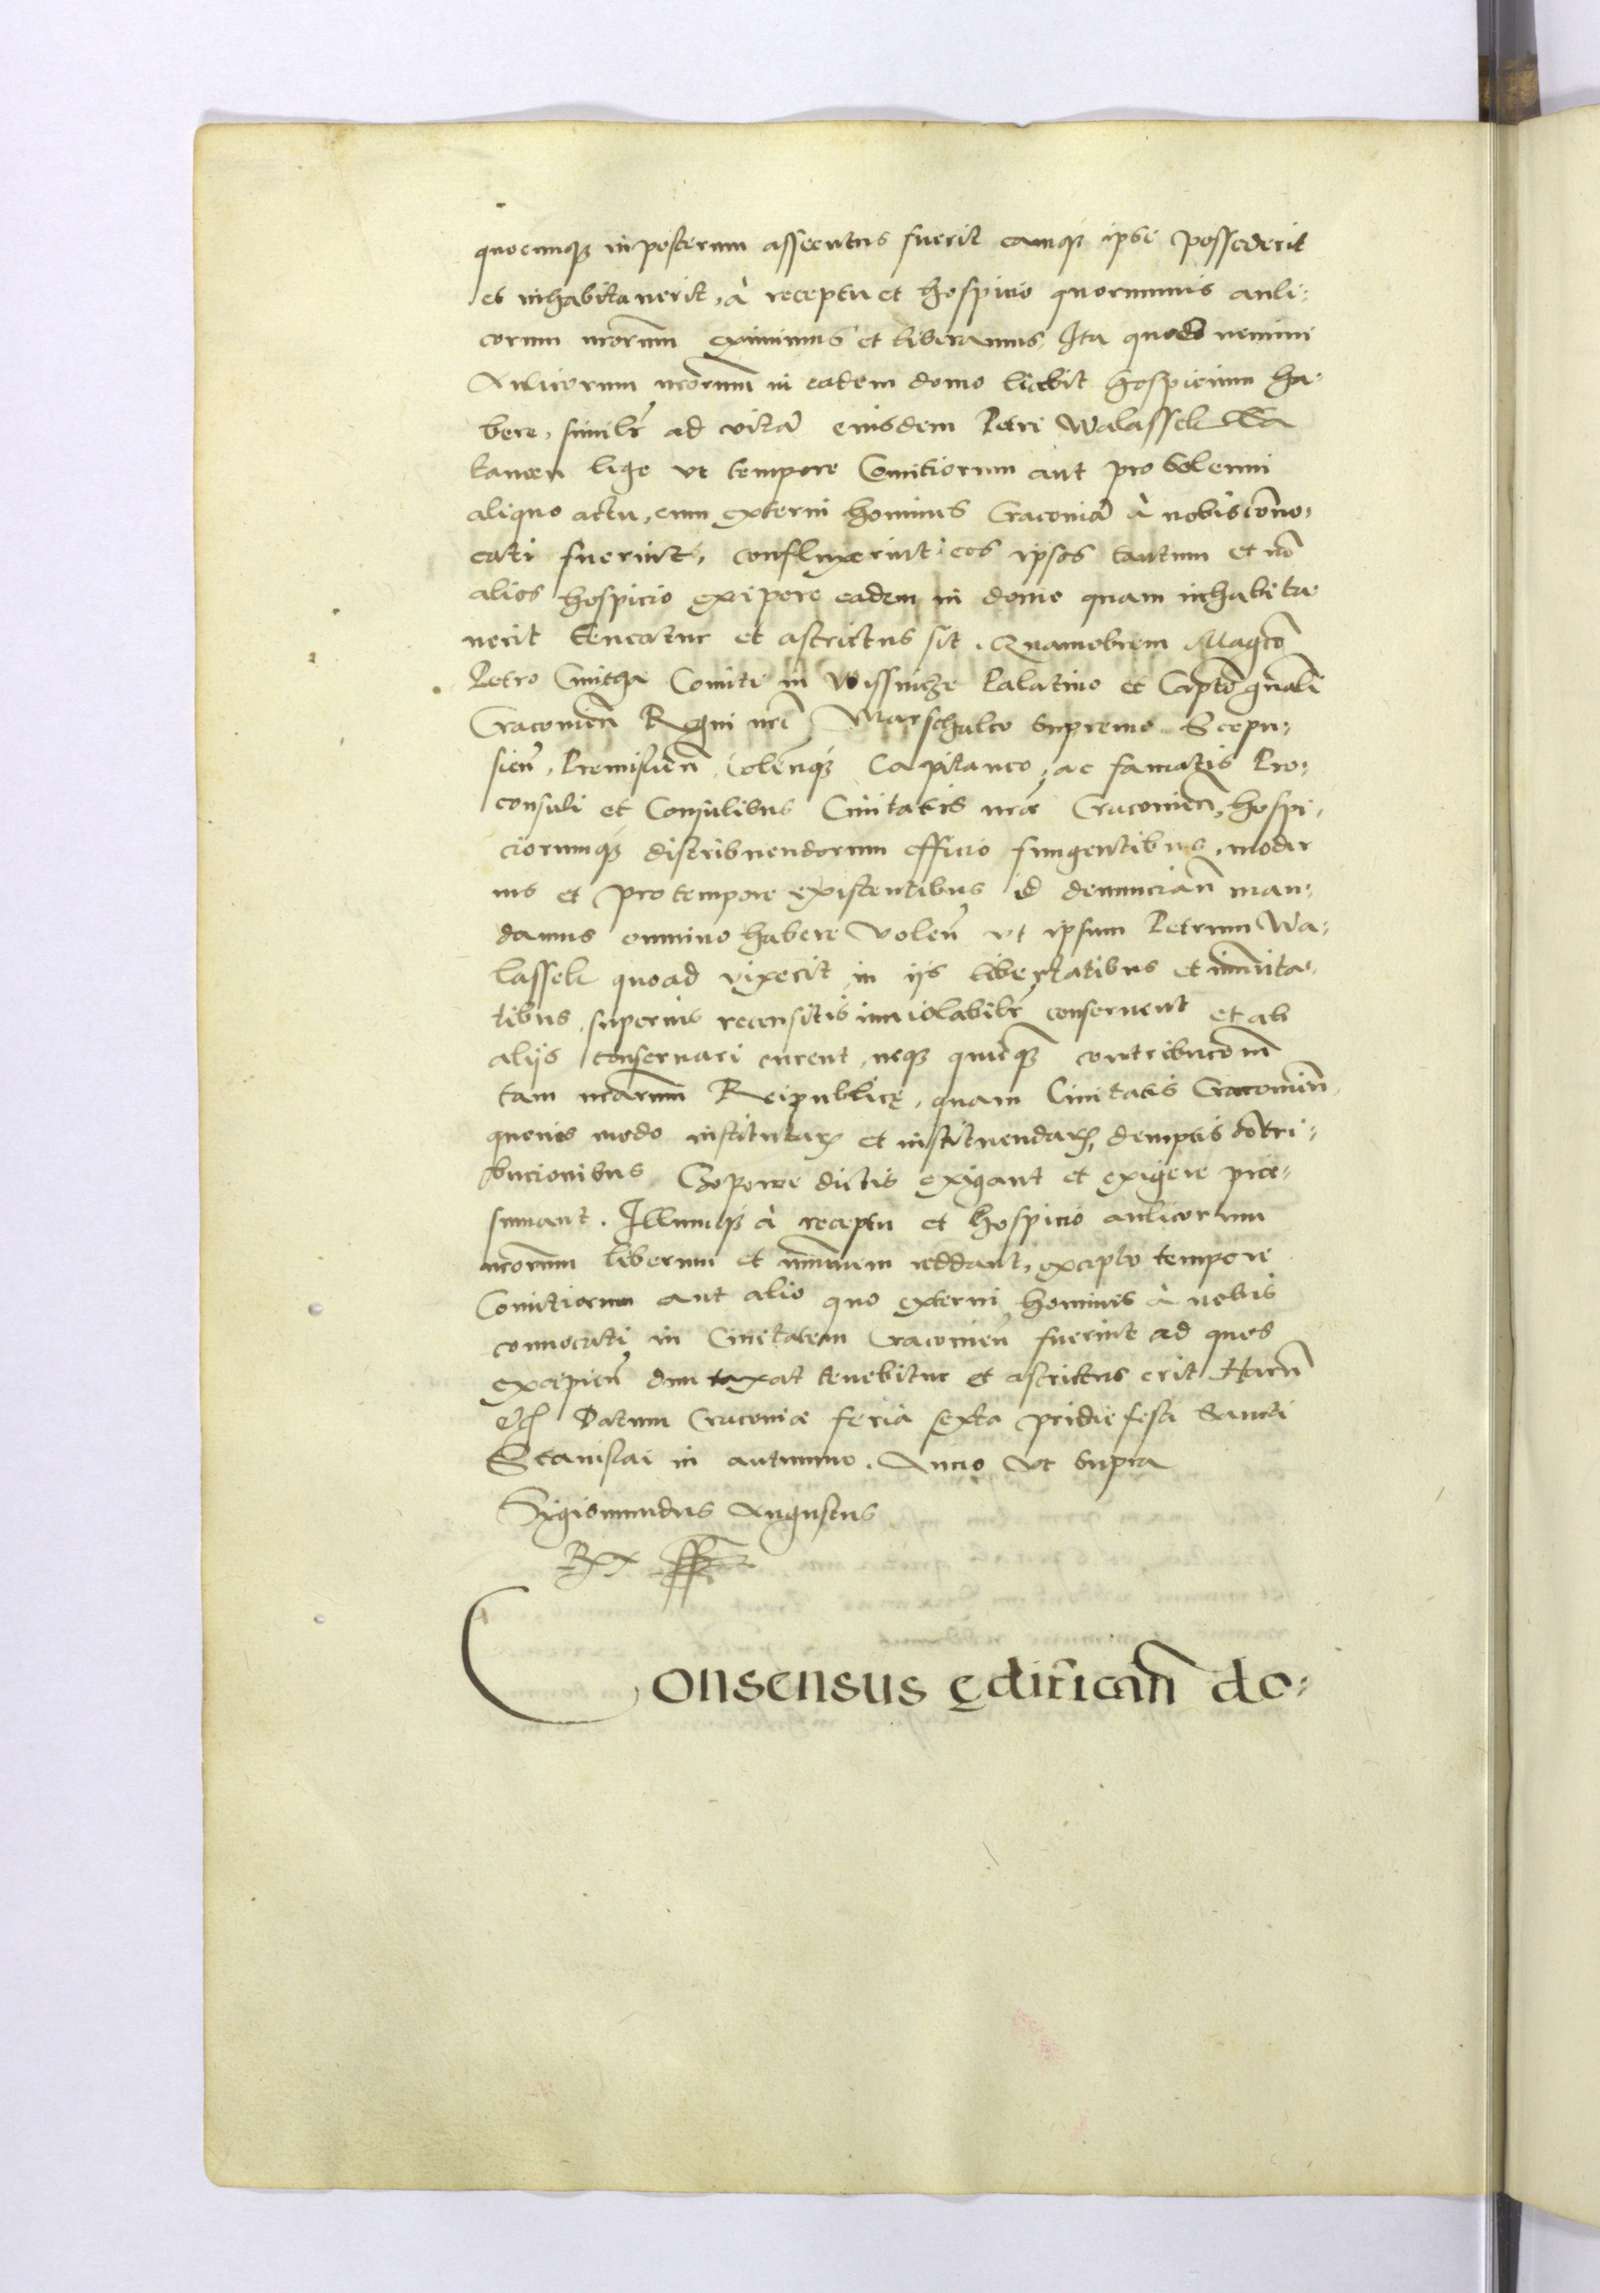 quocunq̃ in posterum assecutus fuerit eamq̃ ipse possederit
et inhabitauerit, à receptu et hospicio quorumuis auli:
corum nr̃orum eximimus et liberamus, Ita quod nemini
Aulicorum nr̃orum in eadem domo licebit hospicium ha:
bere, similr̃ ad vitã eiusdem Petri Walassek
tamen lege vt tempore Comitiorum aut pro solenni
aliquo actu, cum externi homines Cracouiã à nobis cõuo:
cati fuerint, confluxerint eos ipsos tantum et nõ
alios hospicio excipere eadem in domo quam inhabita
uerit teneatur et astrictus sit. Quamobrem Mag̃co
Petro Cmitha Comiti in Wissnicze Palatino et Capt̃o gñali
Cracouieñ Regni nr̃i Marschalco supremo Scepu:
sieñ, Premislieñ, Coleñq̃ Capitaneo, ac famatis Pro:
consuli et Consulibus Ciuitatis nr̃æ Cracouieñ, hospi:
ciorumq̃ distribuendorum officio fungentibus, moder
nis et pro tempore existentibus id denunciañ man:
damus omnino habere voleñ vt ipsum Petrum Wa:
lassek quoad vixerit in ijs libertatibus et im̃unita:
tibus superius recensitis inuiolabilr̃ conseruent et ab
alijs conseruari curent, neq̃ quicq̃ contribuc̃onũ
tam nr̃arum Reipublicę, quam Ciuitatis Cracouieñ
quouis modo institutarũ et instituendarũ, demptis cõtri:
bucionibus Czopowe dictis exigant et exigere præ:
sumant. Illumq̃ à receptu et hospicio aulicorum
nr̃orum liberum et im̃unem reddant, excepto tempore
Comitiorum aut alio quo externi homines à nobis
conuocati in Ciuitatem Cracouieñ fuerint ad quos
excipieñ dum taxat tenebitur et astrictus erit Harũ
etc Datum Cracouiæ feria sexta pridie festi Sancti
Stanislai in autumno. Anno vt supra
Sigismundus Augustus
Rex
Consensus ędificañ do: